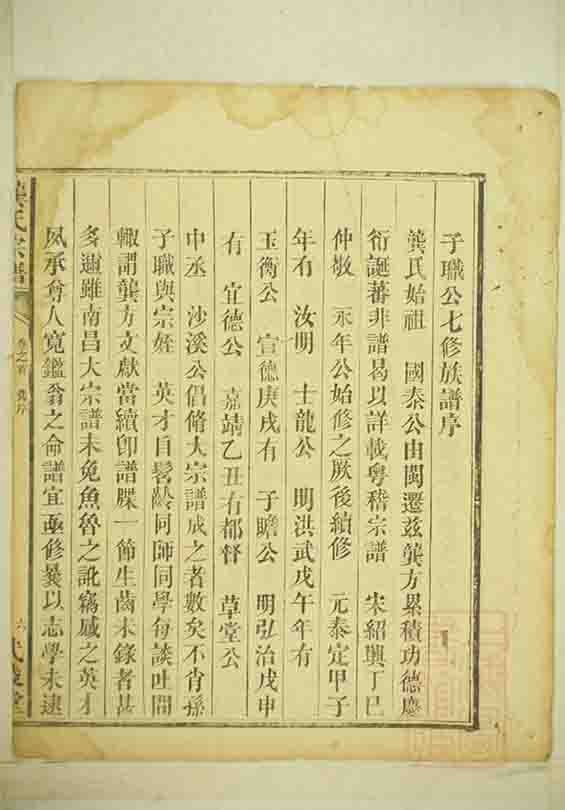 子職公七修族譜序
龔氏始祖 國泰公由閩遷玆龔方累積功德慶
衍誕蕃非譜曷以詳載粤稽宗譜 宋紹興丁巳
仲敬 永年公始修之厥後續修 元泰定甲子
年有 汝明 士龍公 明洪武戊午年有
玉衡公 宣德庚戌有 子瞻公 明弘治戊申
有 宜德公 嘉靖乙丑有都督 草堂公
中丞 沙溪公倡脩大宗譜成之者數矣不肖孫
子職與宗姪 英才自髫齡同師同學每談吐間
輙謂龔方文獻當續卽譜牒一節生齒未錄者甚
多邇雖南昌大宗譜未免魚魯之訛竊感之英才
夙承尊人寬鑑翁之命譜宜亟修曩以志學未逮
氏宗譜
卷之首
六